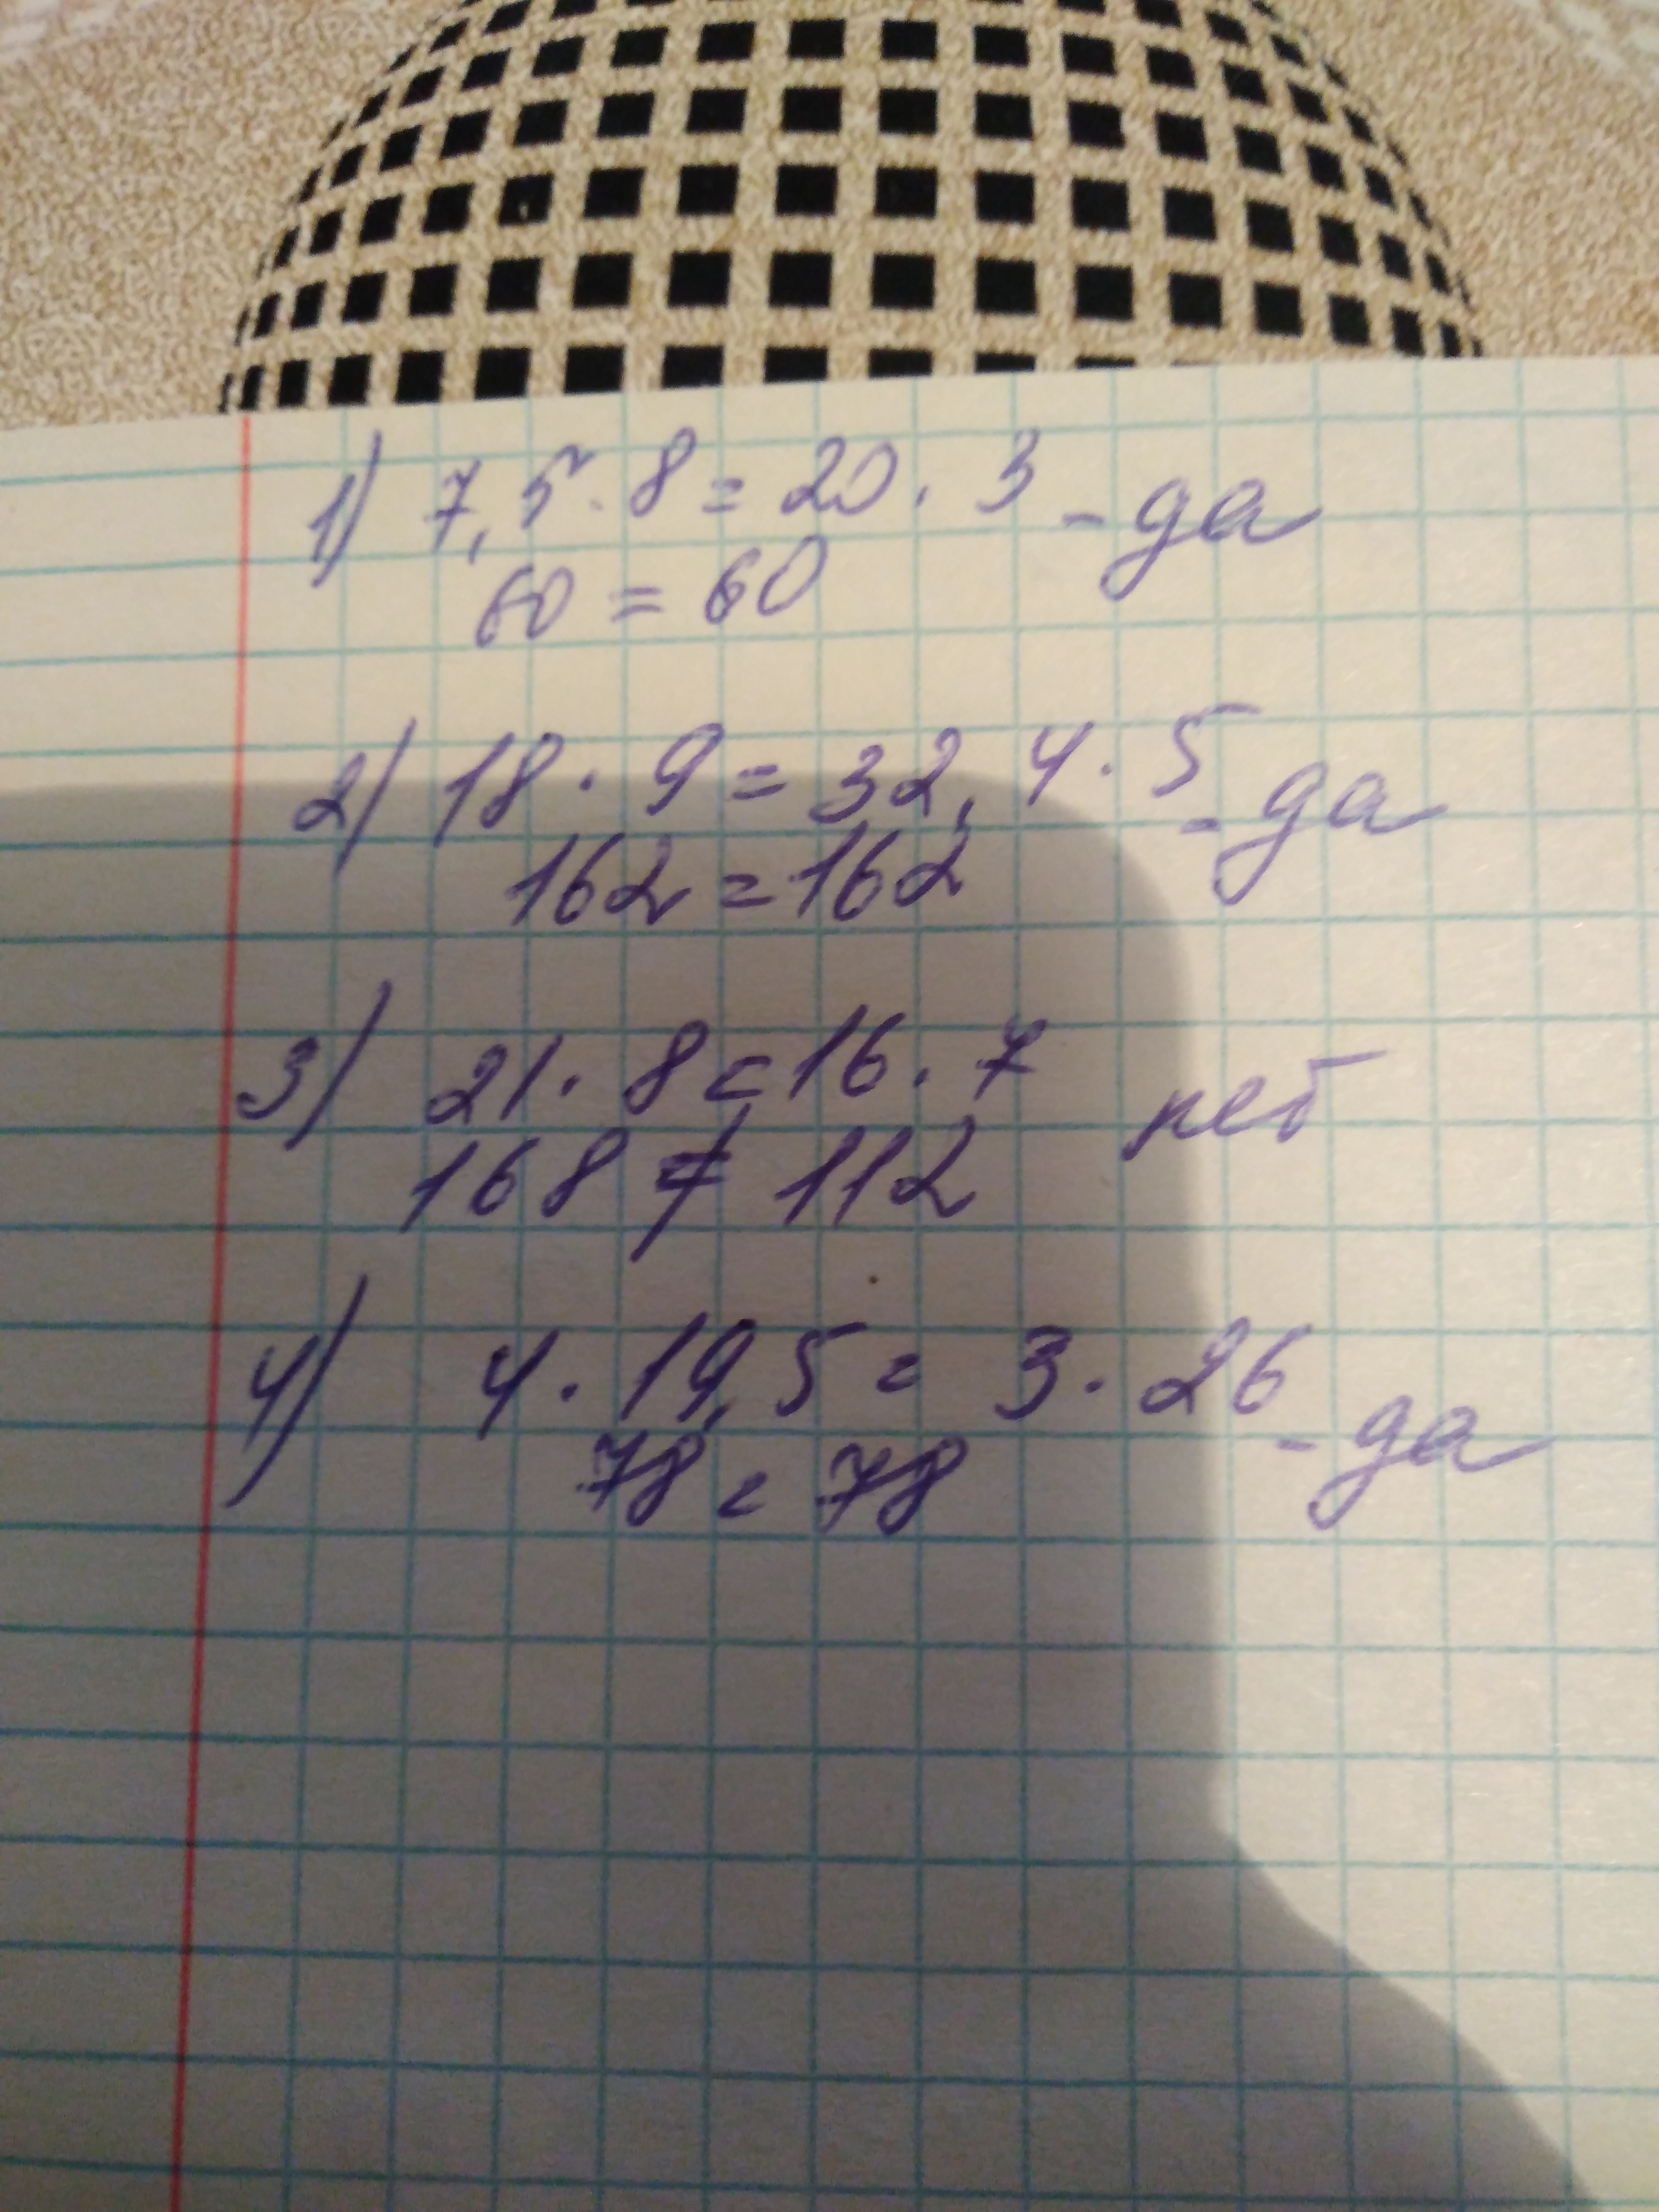 1) 7,5 · 8 = 20 · 3 - да
60 = 60
2) 18 · 9 = 32,4 · 5 - да
162 = 162
3) 21 · 8 = 16 · 7 нет
168 ≠ 112
4) 4 · 19,5 = 3 · 26 - да
78 = 78